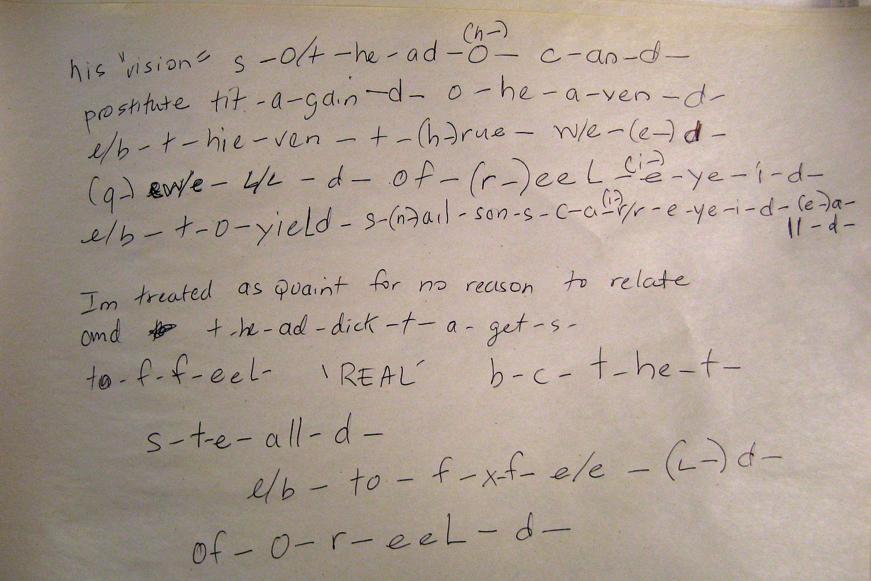 his "vision" s-o/t-he-ad-(h-)O- c-an-d-
prostitute tit-a-gain-d- o-he-a-ven-d-
e/b-t-hie-ven-t-(h-)rue- w/e-(e-)d-
(q-) w/e- L/L-d- of-(r-)eeL-(i-)e-ye-i-d-
e/b-t-o-yieLd-s-(n-)ail-son-s-c-a-(i-)r/r-e-ye-i-d-(e-)a-
ll-d-
Im treated as Quaint for no reason to relate
and t-he-ad-dick-t-a-get-s-
to-f-f-eeL- 'REAL' b-c-t-he-t-
s-t-e-all-d-
e/b-to-f-x-f-e/e-(L-)d-
of-o-r-eeL-d-